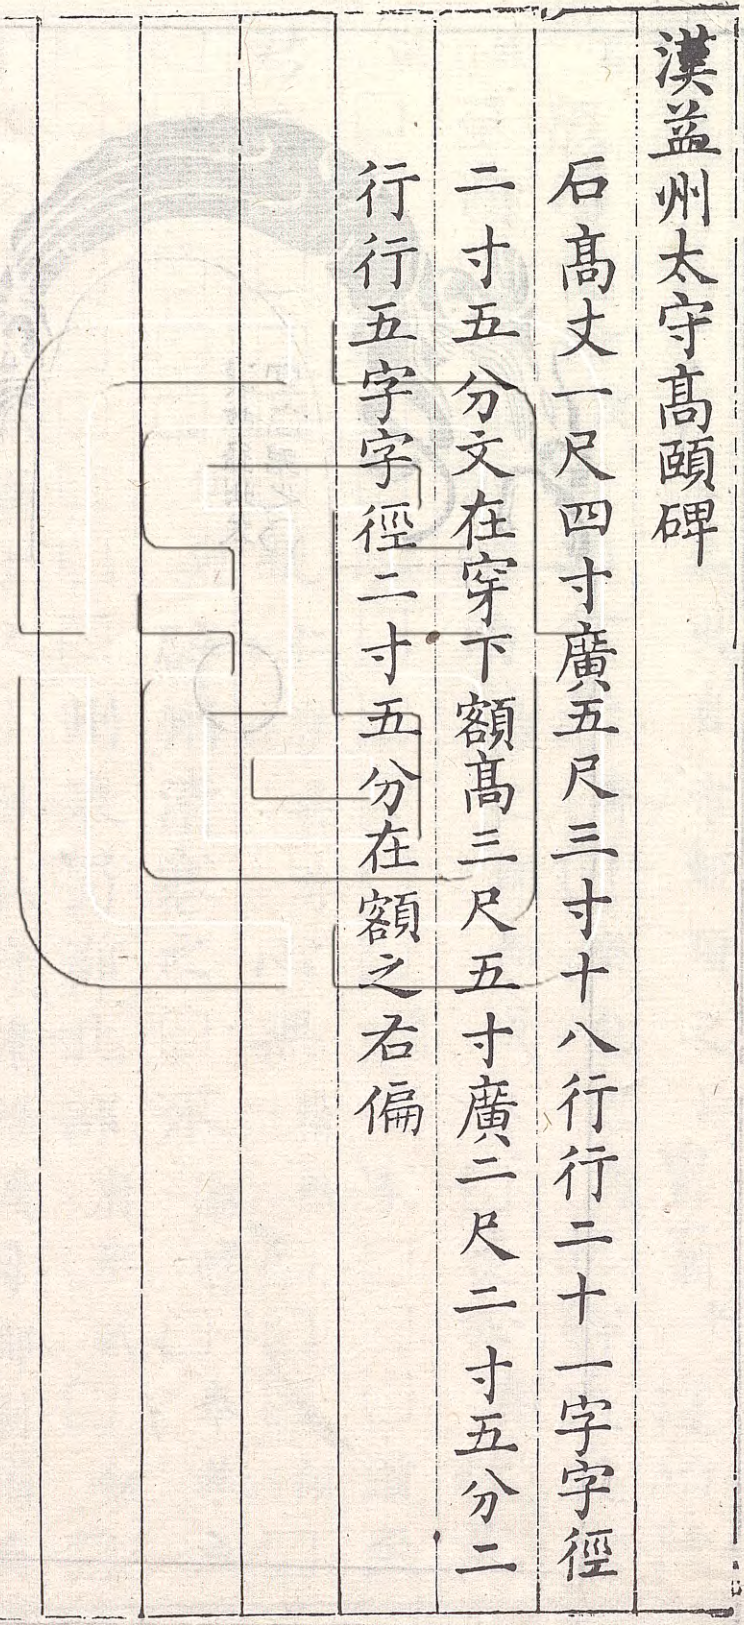 漢益州太守髙頤碑
石髙丈一尺四寸廣五尺三寸十八行行二十一字字徑
二寸五分文在穿下額髙三尺五寸廣二尺二寸五分二
行行五字字徑二寸五分在額之右偏